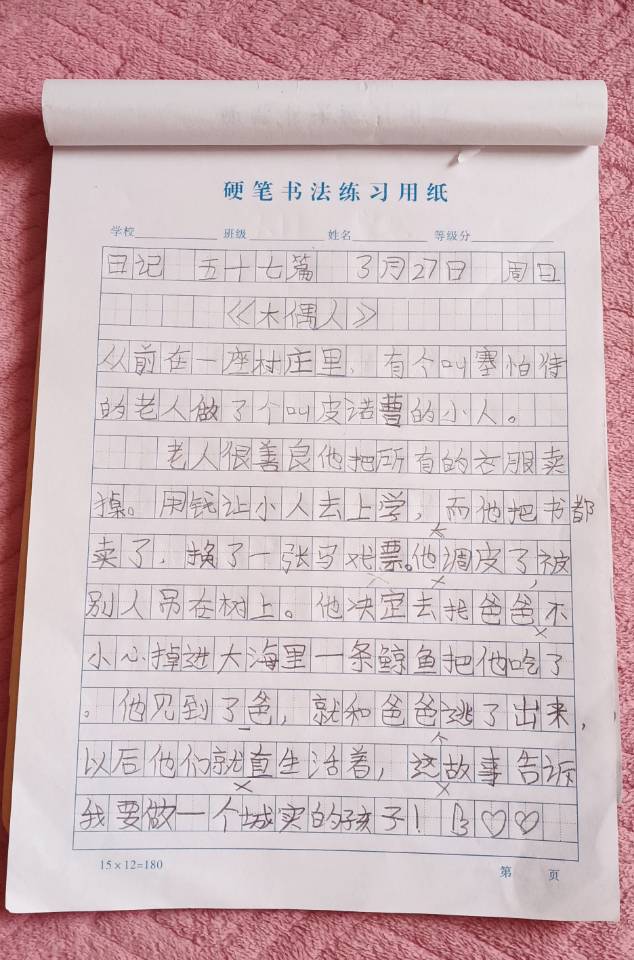 硬笔书法练习用纸
学校 班级 姓名 等级分
日记 五十七篇 3月27日 周日
《木偶人》
从前在一座村庄里,有个叫塞怕待
的老人做了个叫皮诺曹的小人。
老人很善良他把所有的衣服卖
掉。用钱让小人去上学,而他把书都
卖了,换了一张马戏票。他调皮了,被
别人吊在树上。他决定去找爸爸不
小心掉进大海里一条鲸鱼把他吃了
。他见到了爸,就和爸爸逃了出来,
以后他们就直生活着,这故事告诉
我要做一个城实的孩子!
15×12=180
第 页